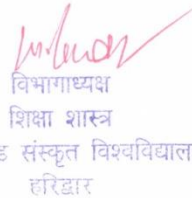 विभागाध्यक्ष
शिक्षा शास्त्र
ड संस्कृत विश्वविद्याल
हरिद्वार